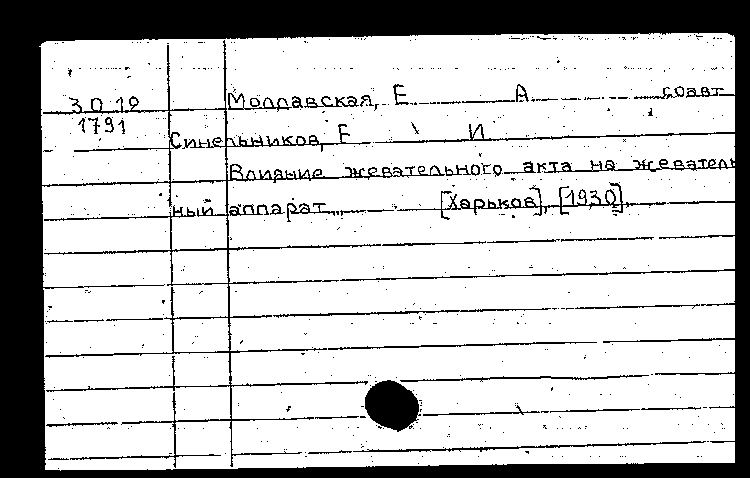 30 19 Молдавская, Е А соавт
1791
Синельников, Е И
Влияние жевательного акта на жеватель
ный аппарат... [Харьков], [1930].